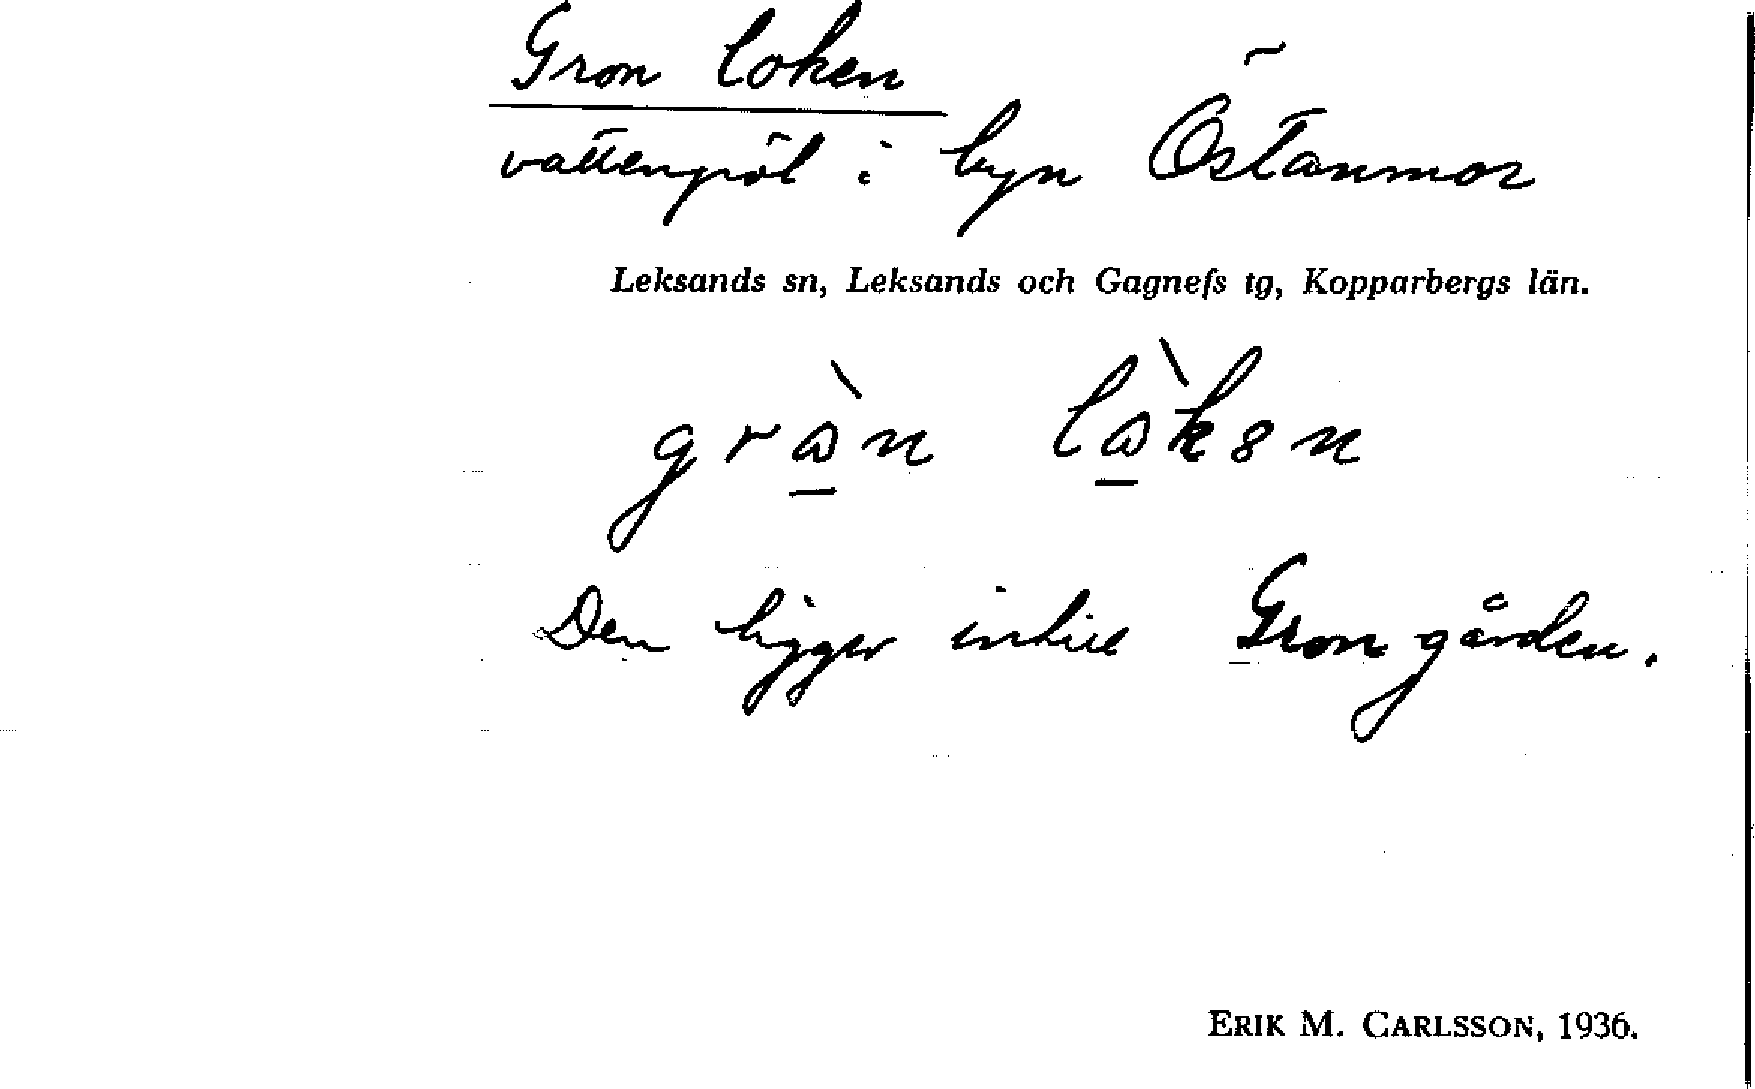 Gron loken
vattenpöl i byn Östanmor
Leksands sn, Leksands och Gagnefs tg, Kopparbergs län.
grὼ̱n lὼ̱kən
Den ligger intill Gron gården.
ERIK M. CARLSSON, 1936.